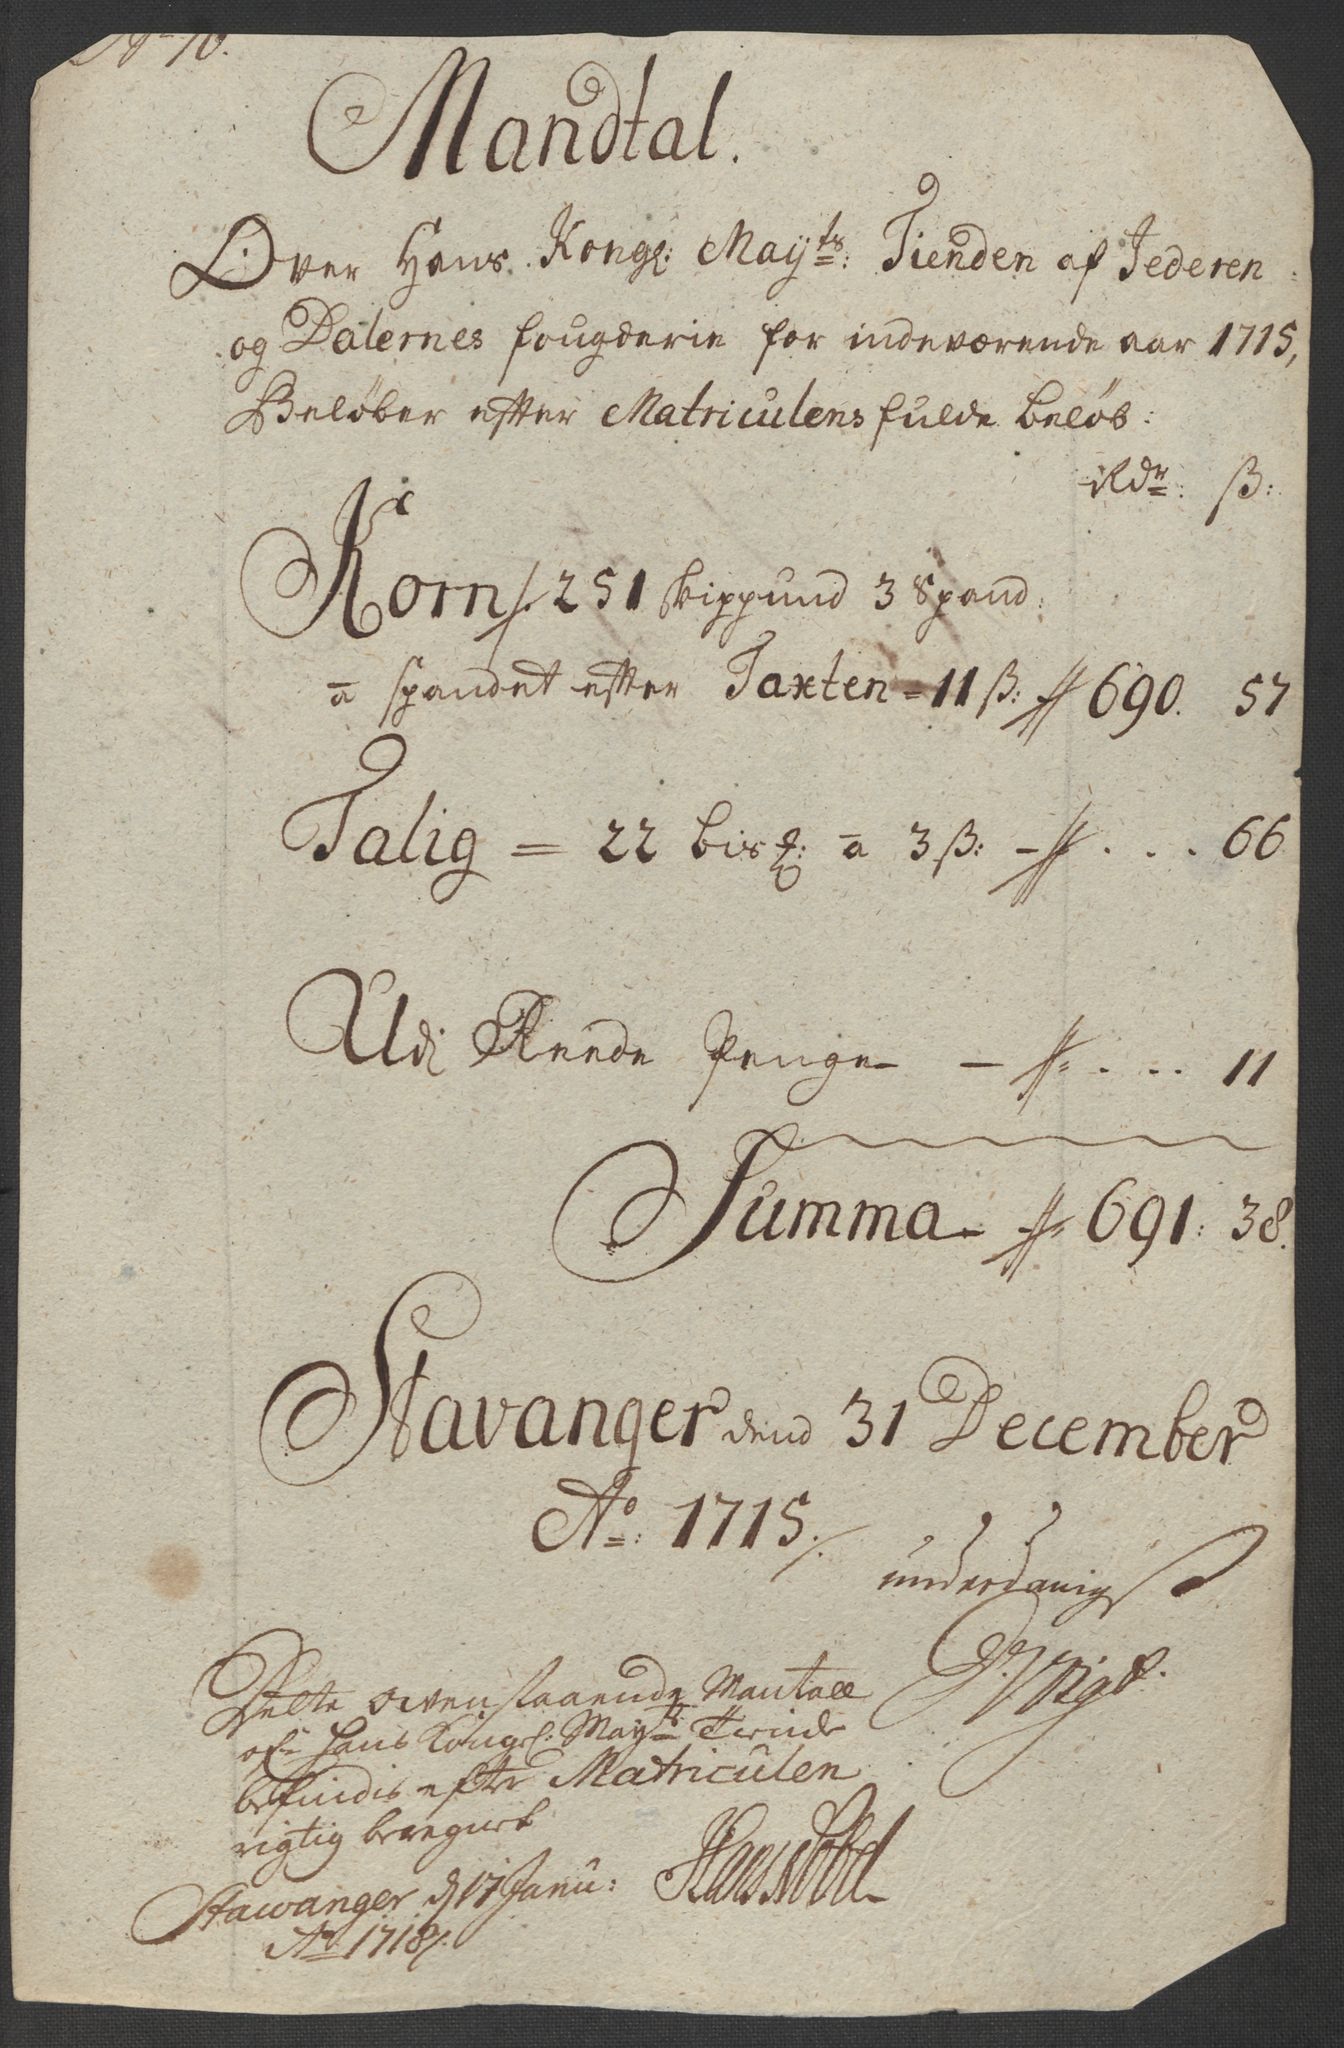 No 10.
Mandtal.
Over Hans Kongl: Mayts: Tienden af Jederen
og Dalernes fougderie for indeværende aar 1715,
Beløber efter Matriculens fulde beløb:
Rdr: ß:
Korn/: 251 skippund 3 Spand:
a spandet efter Taxten = 11 ß: // 690. 57
Talig = 22 bis℔: a 3 ß: - // . . . 66
Udj Reede Penge - // . . . 11
Summa // 691: 38.
Stavanger dend 31 December
Ao: 1715./.
underdanigst
Dette ovenstaaende Mantall
ofr Hans Kongl: Mayts Tiende
befindis efter Matriculen
rigtig beregnet
Stawanger d 17 Janu:
Ao 1718/.